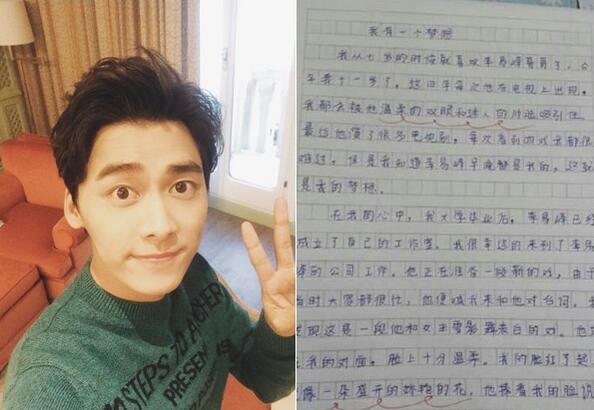 STEPS TO A CHEER
PRESENT
我有一个梦想
我从七岁的时候就喜欢李易峰哥哥了，今
年我十一岁了。这四年每次他在电视上出现，
我都会被他温柔的双眼和迷人的
吸引住。
最近他演了很多电视剧，每次看到
戏我都很
难过，但是我知道李易峰早晚都是我的，这就
是我的梦想。
在我的心中，我大学毕业后，李易峰已经
成立了自己的工作室。我很幸运的来到了李易
峰的公司工作。他正在准备一段新的戏，由于
当时大家都很忙，他便喊我来和他对台词。我
发现这是一段他和女主要
表白的对。他
我的对面，脸上十分温柔。我的脸红了起
像一朵盛开的娇艳的花，他捧着我的脸说